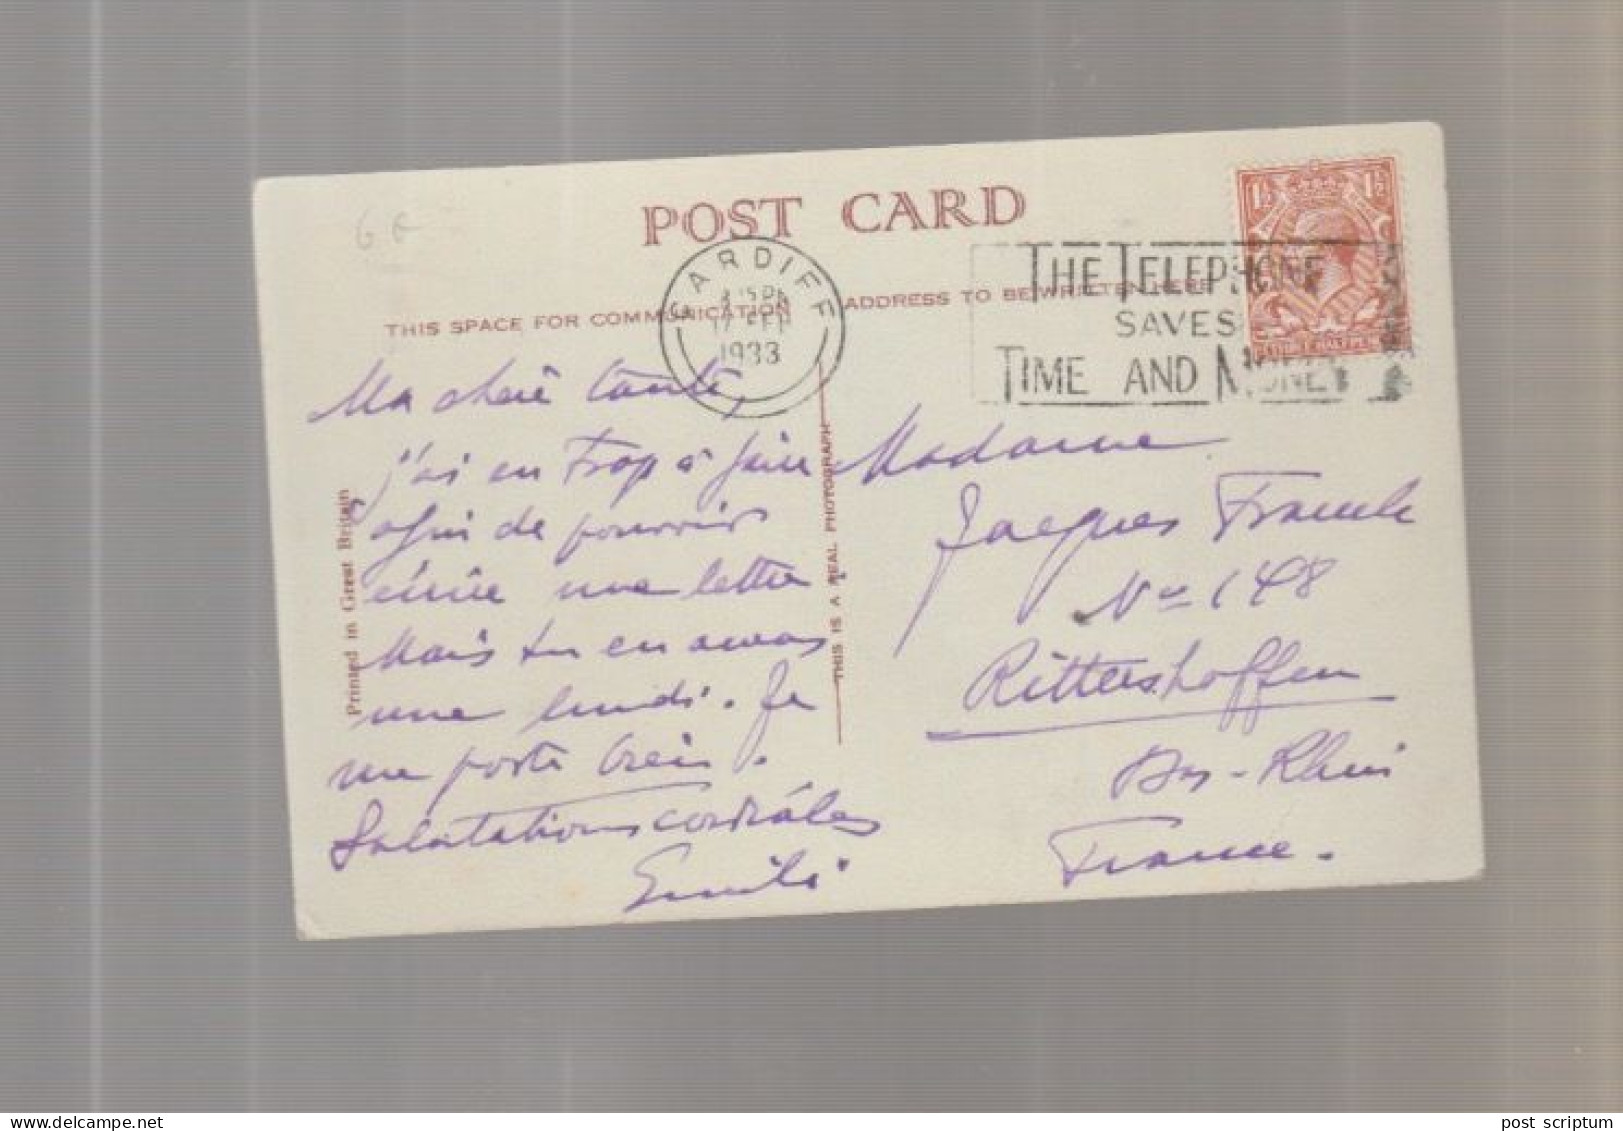 6 €
POST CARD
CARDIFF
3.15 PM
17 FEB
1933
THE TELEPHONE
SAVES
TIME AND MONEY
1½ 1½
THIS SPACE FOR COMMUNICATION
ADDRESS TO BE WRITTEN HERE
Printed in Great Britain
THIS IS A REAL PHOTOGRAPH
Ma chère tante,
j'ai eu trop à faire
afin de pouvoir
écrire une lettre
Mais tu en auras
une lundi. Je
me porte bien.
Salutations cordiales
Emili
Madame
Jacques Franck
No 148
Rittershoffen
Bas-Rhin
France.
post scriptum